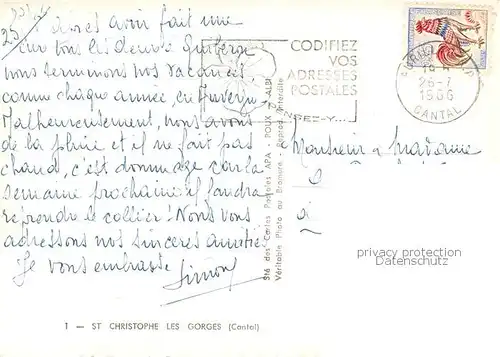 25
Après avoir fait une
cure tous les deux à Quiberon
nous terminons nos vacances,
comme chaque année, en Auvergne
Malheureusement, nous avons
de la pluie et il ne fait pas
chaud, c'est dommage car la
semaine prochaine il faudra
reprendre le collier! Nous vous
adressons nos sincères amitiés
Je vous embrasse Simon
CODIFIEZ
VOS
ADRESSES
POSTALES
PENSEZ-Y...
26-7
1966
CANTAL
Monsieur et Madame
à
Sté des Cartes Postales APA - POUX - ALBI
Véritable Photo au Bromure - Reprod. Interdite
privacy protection
Datenschutz
1 — ST CHRISTOPHE LES GORGES (Cantal)